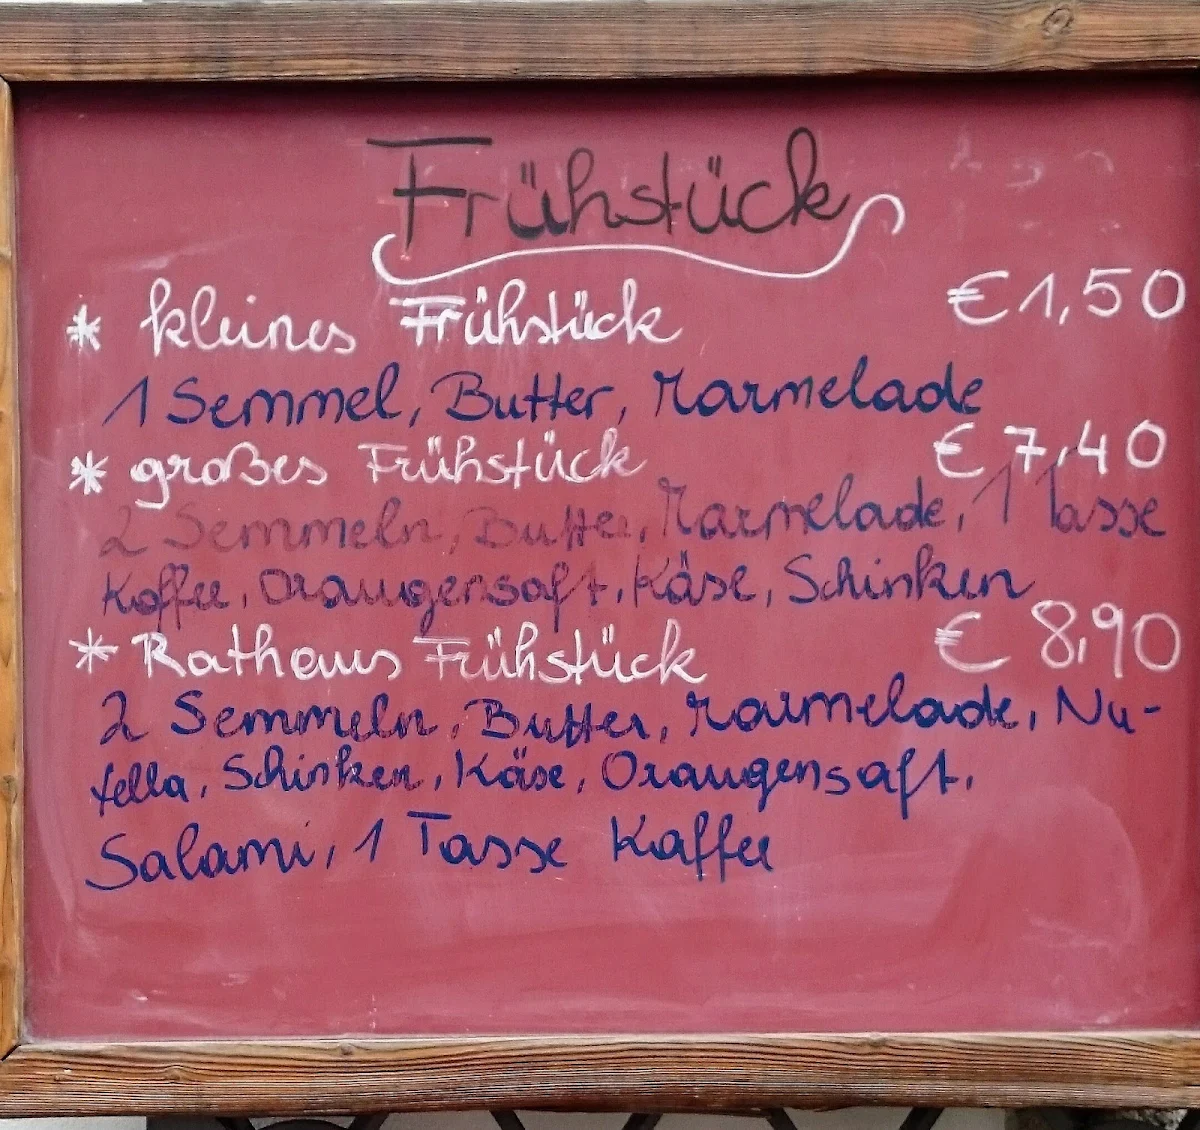 Frühstück
* kleines Frühstück €1,50
1 Semmel, Butter, Marmelade
* großes Frühstück € 7,40
2 Semmeln, Butter, Marmelade, 1 Tasse
Kaffee, Orangensaft, Käse, Schinken
* Rathaus Frühstück € 8,90
2 Semmeln, Butter, Marmelade, Nu-
tella, Schinken, Käse, Orangensaft,
Salami, 1 Tasse Kaffee